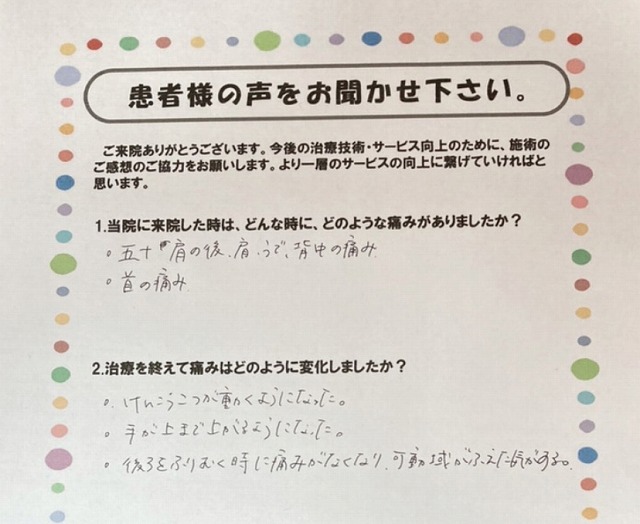 患者様の声をお聞かせ下さい。
ご来院ありがとうございます。今後の治療技術・サービス向上のために、施術の
ご感想のご協力をお願いします。より一層のサービスの向上に繋げていければと
思います。
1.当院に来院した時は、どんな時に、どのような痛みがありましたか？
。五十肩の後、肩、うで、背中の痛み
。首の痛み
2.治療を終えて痛みはどのように変化しましたか？
。けんこうこつが動くようになった。
。手が上まで上がるようになった。
。後ろをふりむく時に痛みがなくなり、可動域がふえた気がする。